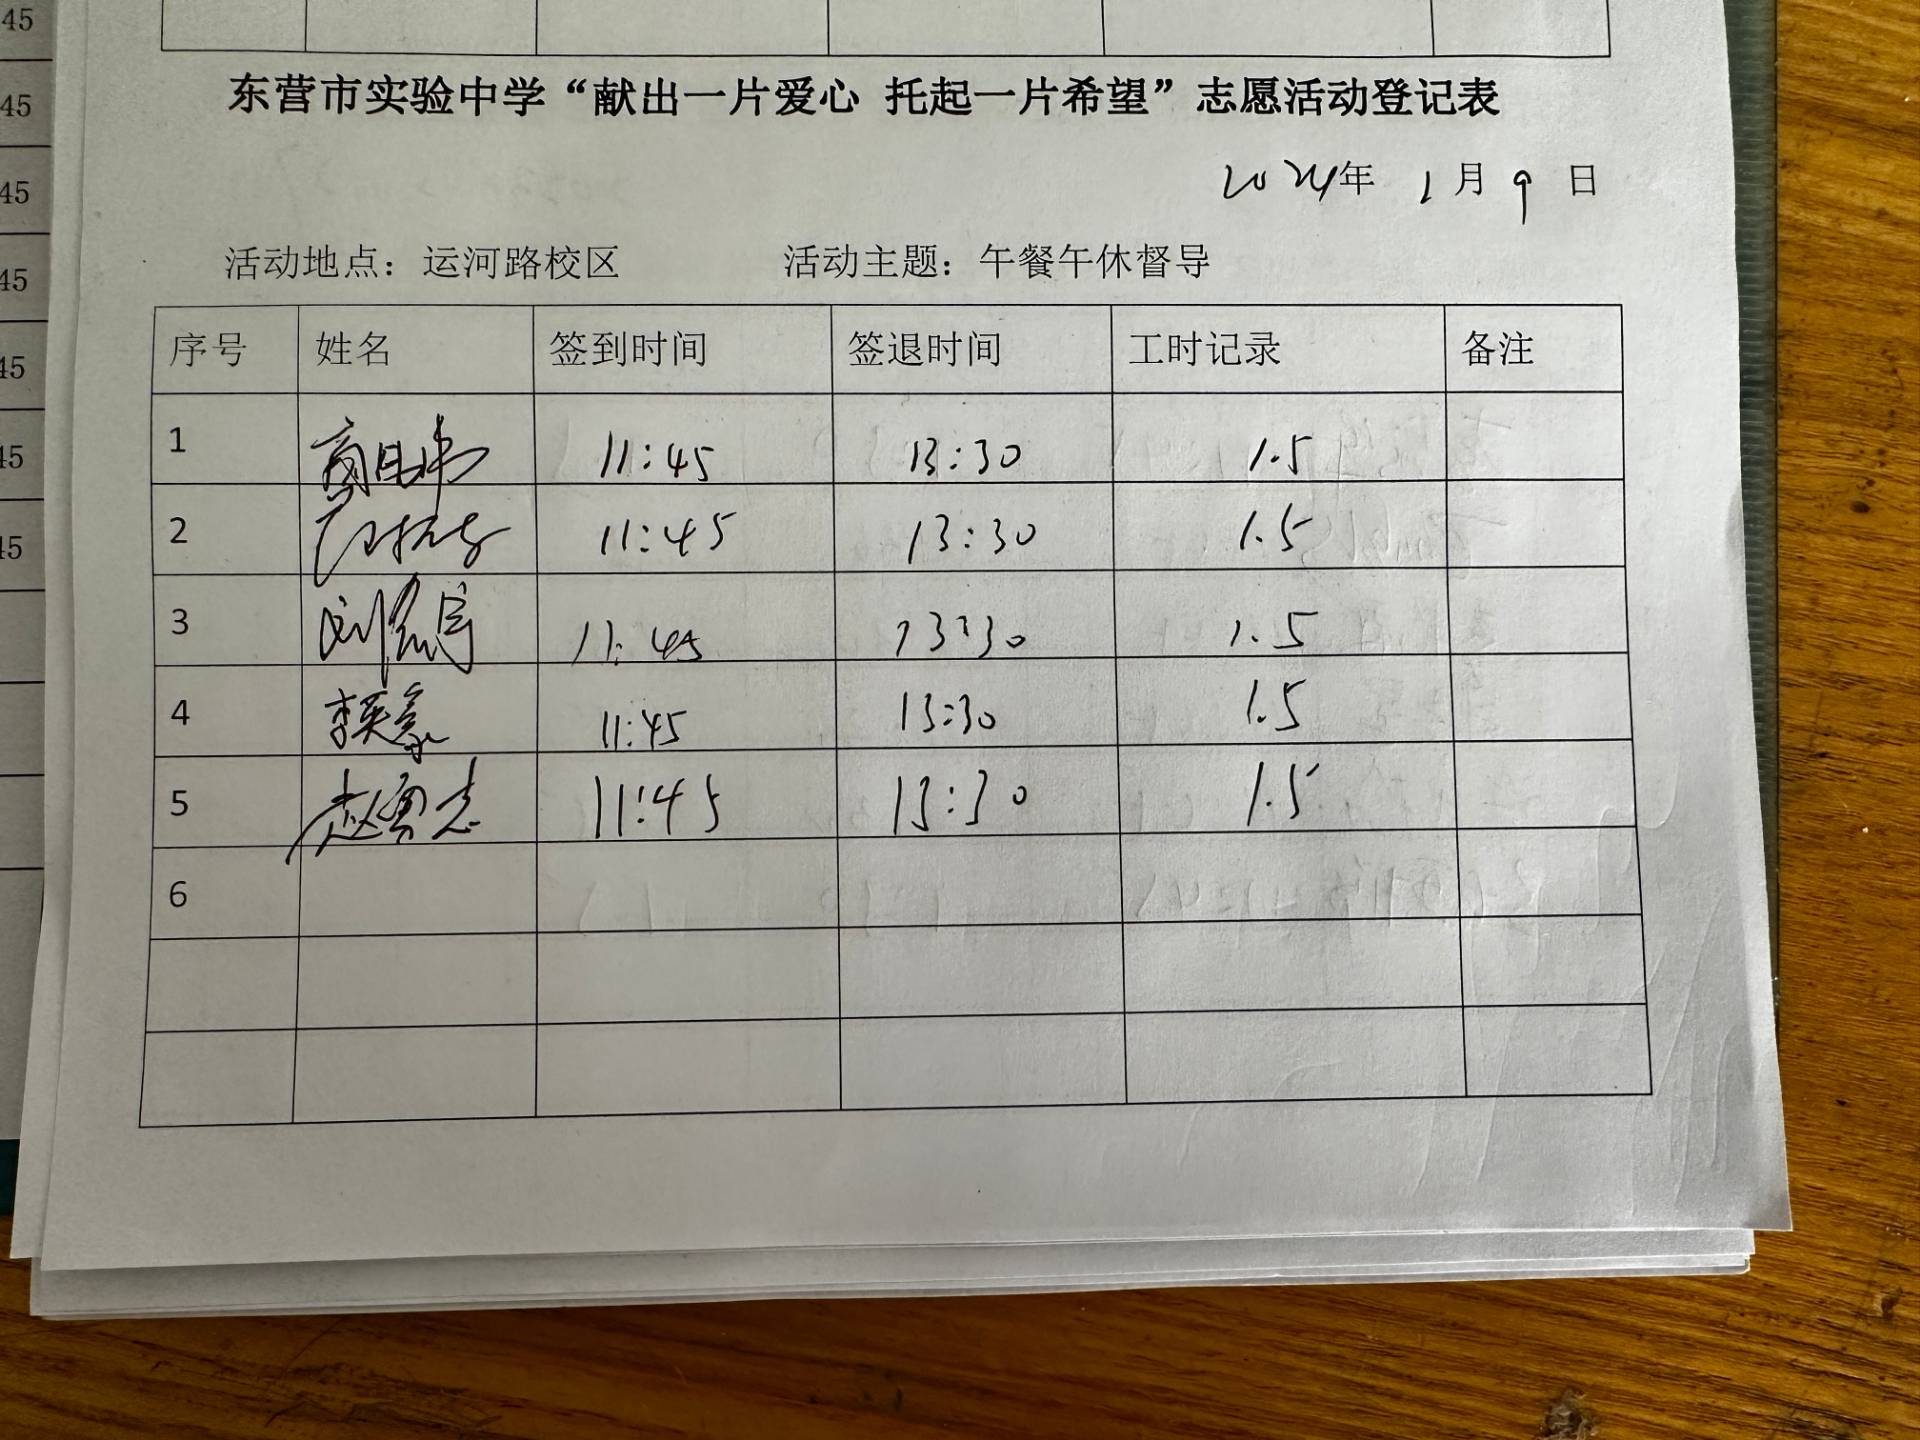 45
45
45
45
45
45
45
东营市实验中学“献出一片爱心 托起一片希望”志愿活动登记表
2024年 1月 9 日
活动地点：运河路校区 活动主题：午餐午休督导
序号 姓名 签到时间 签退时间 工时记录 备注
1 11:45 13:30 1.5
2 11:45 13:30 1.5
3 刘 11:45 13:30 1.5
4 李英豪 11:45 13:30 1.5
5 赵勇志 11:45 13:30 1.5
6